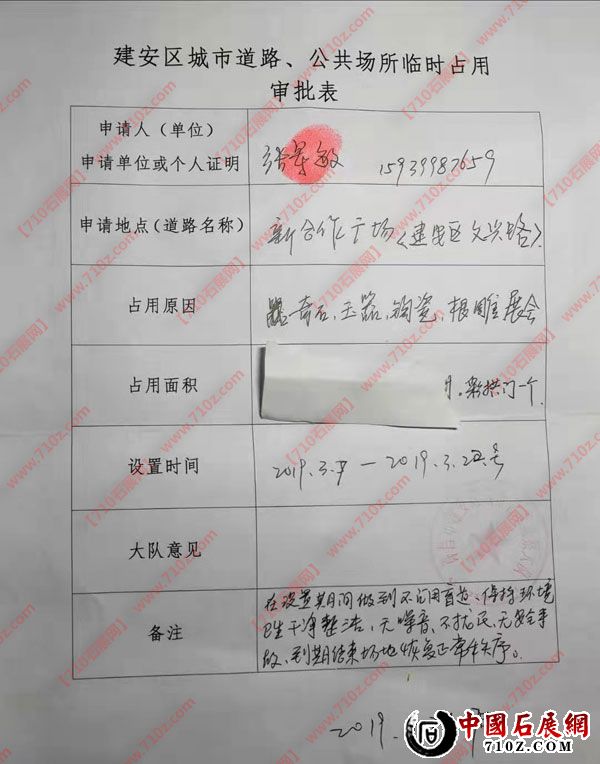 建安区城市道路、公共场所临时占用
审批表
申请人（单位）
申请单位或个人证明
张景敏 15939987659
申请地点（道路名称）
新合作广场《建安区文兴路》
占用原因
奇石、玉器、钧瓷、根雕展会
占用面积
彩拱门一个
设置时间
2019.3.9—2019.3.2号
大队意见
备注
在设置期间做到不占用盲道、保持环境
卫生干净整洁，无噪音、不扰民、无安全事
故，到期结束场地恢复正常秩序。
2019.
中國石展網
710z.com
【710石展网】
www.710z.com